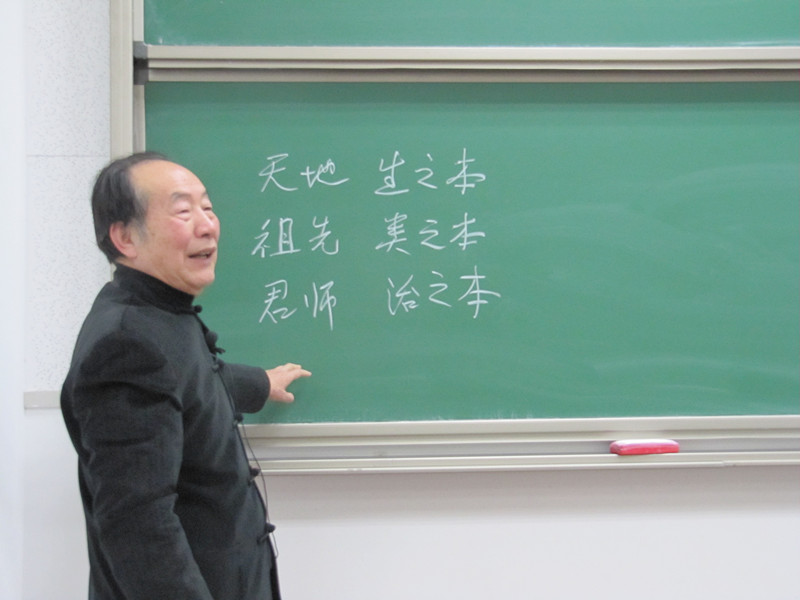 天地 生之本
祖先 类之本
君师 治之本